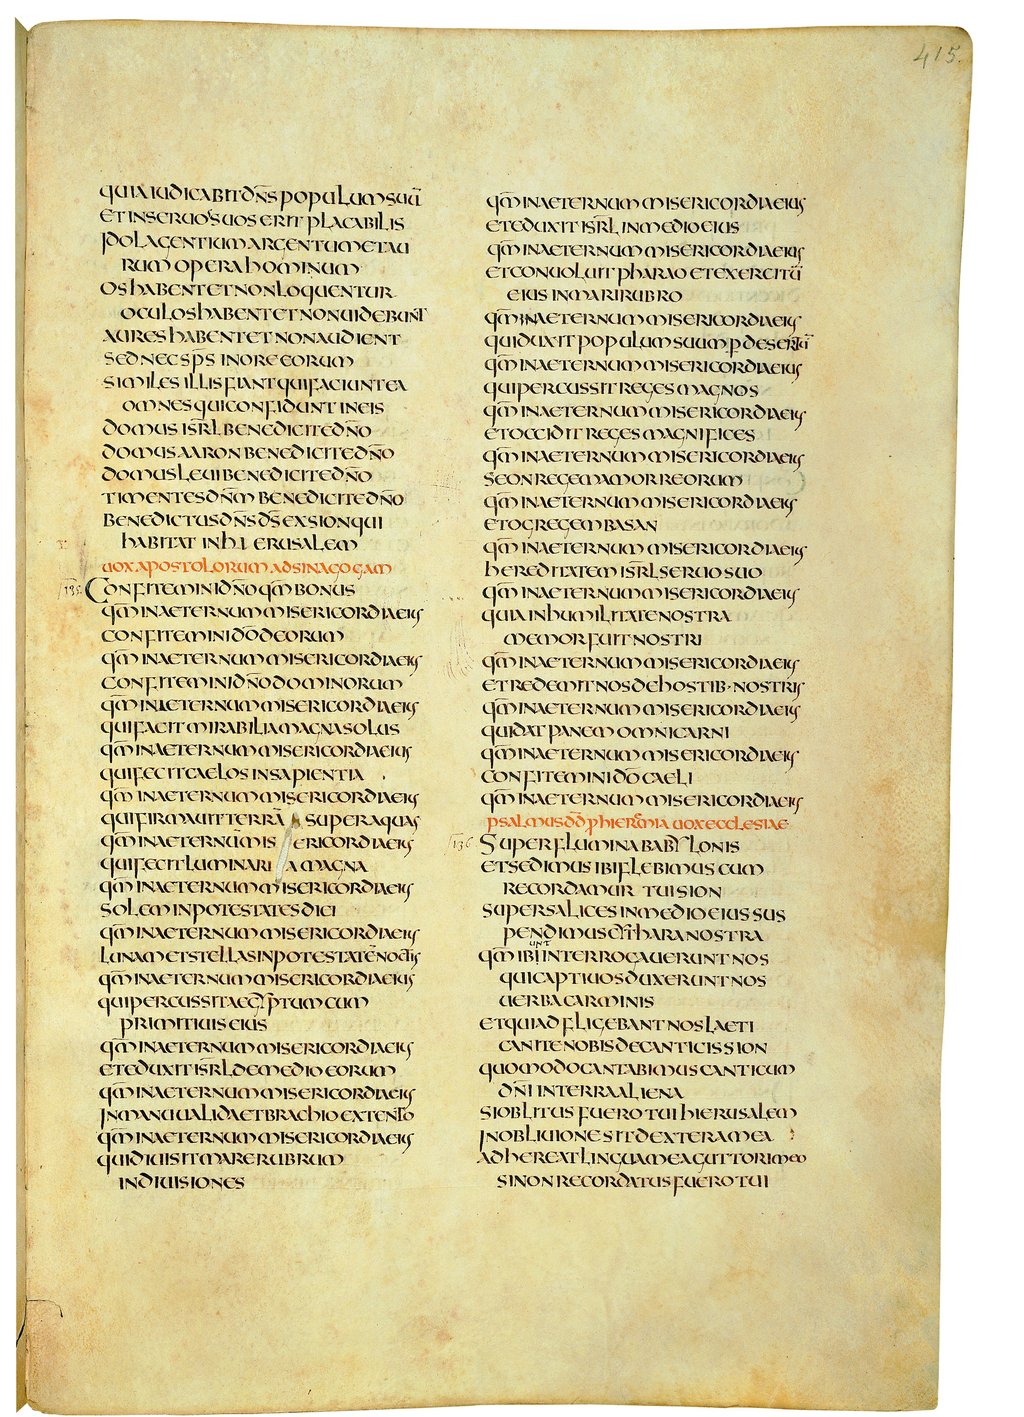 415.
QUIA IUDICABIT DN̅S POPULUM SUU̅
ET IN SERUOS SUOS ERIT PLACABILIS
IDOLA GENTIUM ARGENTUM ET AU
RUM OPERA HOMINUM
OS HABENT ET NON LOQUENTUR
OCULOS HABENT ET NON UIDEBUNT
AURES HABENT ET NON AUDIENT
SED NEC SP̅S IN ORE EORUM
SIMILES ILLIS FIANT QUI FACIUNT EA
OMNES QUI CONFIDUNT IN EIS
DOMUS ISR̅L BENEDICITE DN̅O
DOMUS AARON BENEDICITE DN̅O
DOMUS LEUI BENEDICITE DN̅O
TIMENTES DN̅M BENEDICITE DN̅O
BENEDICTUS DN̅S DS̅ EX SION QUI
HABITAT IN HIERUSALEM
UOX APOSTOLORUM AD SINAGOGAM
135 CONFITEMINI DN̅O QM̅ BONUS
QM̅ IN AETERNUM MISERICORDIA EIUS
CONFITEMINI DO̅ DEORUM
QM̅ IN AETERNUM MISERICORDIA EIUS
CONFITEMINI DN̅O DOMINORUM
QM̅ IN AETERNUM MISERICORDIA EIUS
QUI FACIT MIRABILIA MAGNA SOLUS
QM̅ IN AETERNUM MISERICORDIA EIUS
QUI FECIT CAELOS IN SAPIENTIA
QM̅ IN AETERNUM MISERICORDIA EIUS
QUI FIRMAUIT TERRA̅ SUPER AQUAS
QM̅ IN AETERNUM MISERICORDIA EIUS
QUI FECIT LUMINARIA MAGNA
QM̅ IN AETERNUM MISERICORDIA EIUS
SOLEM IN POTESTATES DIEI
QM̅ IN AETERNUM MISERICORDIA EIUS
LUNAM ET STELLAS IN POTESTATE̅ NOCTIS
QM̅ IN AETERNUM MISERICORDIA EIUS
QUI PERCUSSIT AEGYPTUM CUM
PRIMITIUIS EIUS
QM̅ IN AETERNUM MISERICORDIA EIUS
ET EDUXIT ISR̅L DE MEDIO EORUM
QM̅ IN AETERNUM MISERICORDIA EIUS
IN MANU UALIDA ET BRACHIO EXTENTO
QM̅ IN AETERNUM MISERICORDIA EIUS
QUI DIUISIT MARE RUBRUM
IN DIUISIONES
QM̅ IN AETERNUM MISERICORDIA EIUS
ET EDUXIT ISR̅L IN MEDIO EIUS
QM̅ IN AETERNUM MISERICORDIA EIUS
ET CONUOLUIT PHARAO ET EXERCITU̅
EIUS IN MARI RUBRO
QM̅ IN AETERNUM MISERICORDIA EIUS
QUI DUXIT POPULUM SUUM P̱ DESERTU̅
QM̅ IN AETERNUM MISERICORDIA EIUS
QUI PERCUSSIT REGES MAGNOS
QM̅ IN AETERNUM MISERICORDIA EIUS
ET OCCIDIT REGES MAGNIFICES
QM̅ IN AETERNUM MISERICORDIA EIUS
SEON REGEM AMORREORUM
QM̅ IN AETERNUM MISERICORDIA EIUS
ET OG REGEM BASAN
QM̅ IN AETERNUM MISERICORDIA EIUS
HEREDITATEM ISR̅L SERUO SUO
QM̅ IN AETERNUM MISERICORDIA EIUS
QUIA IN HUMILITATE NOSTRA
MEMOR FUIT NOSTRI
QM̅ IN AETERNUM MISERICORDIA EIUS
ET REDEMIT NOS DE HOSTIB· NOSTRIS
QM̅ IN AETERNUM MISERICORDIA EIUS
QUI DAT PANEM OMNI CARNI
QM̅ IN AETERNUM MISERICORDIA EIUS
CONFITEMINI DO̅ CAELI
QM̅ IN AETERNUM MISERICORDIA EIUS
PSALMUS DD̅ P HIEREMIA UOX ECCLESIAE
136 SUPER FLUMINA BABYLONIS
ET SEDIMUS IBI FLEBIMUS CUM
RECORDAMUR TUI SION
SUPER SALICES IN MEDIO EIUS SUS
PENDIMUS CITHARA NOSTRA
QM̅ IBI INTERROGAUERUNT NOS
QUI CAPTIUOS DUXERUNT NOS
UERBA CARMINIS
ET QUI ADFLIGEBANT NOS LAETI
CANITE NOBIS DE CANTICIS SION
QUOMODO CANTABIMUS CANTICUM
DN̅I IN TERRA ALIENA
SI OBLITUS FUERO TUI HIERUSALEM
IN OBLIUIONE SIT DEXTERA MEA
ADHEREAT LINGUA MEA GUTTORI MEO
SI NON RECORDATUS FUERO TUI